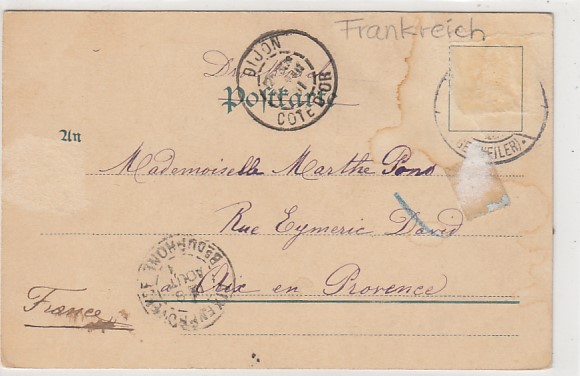 Frankreich
DIJON
COTE D'OR
Postkarte
An
Mademoiselle Marthe Pons
Rue Eymeric David
à Aix en Provence
France
AOUT